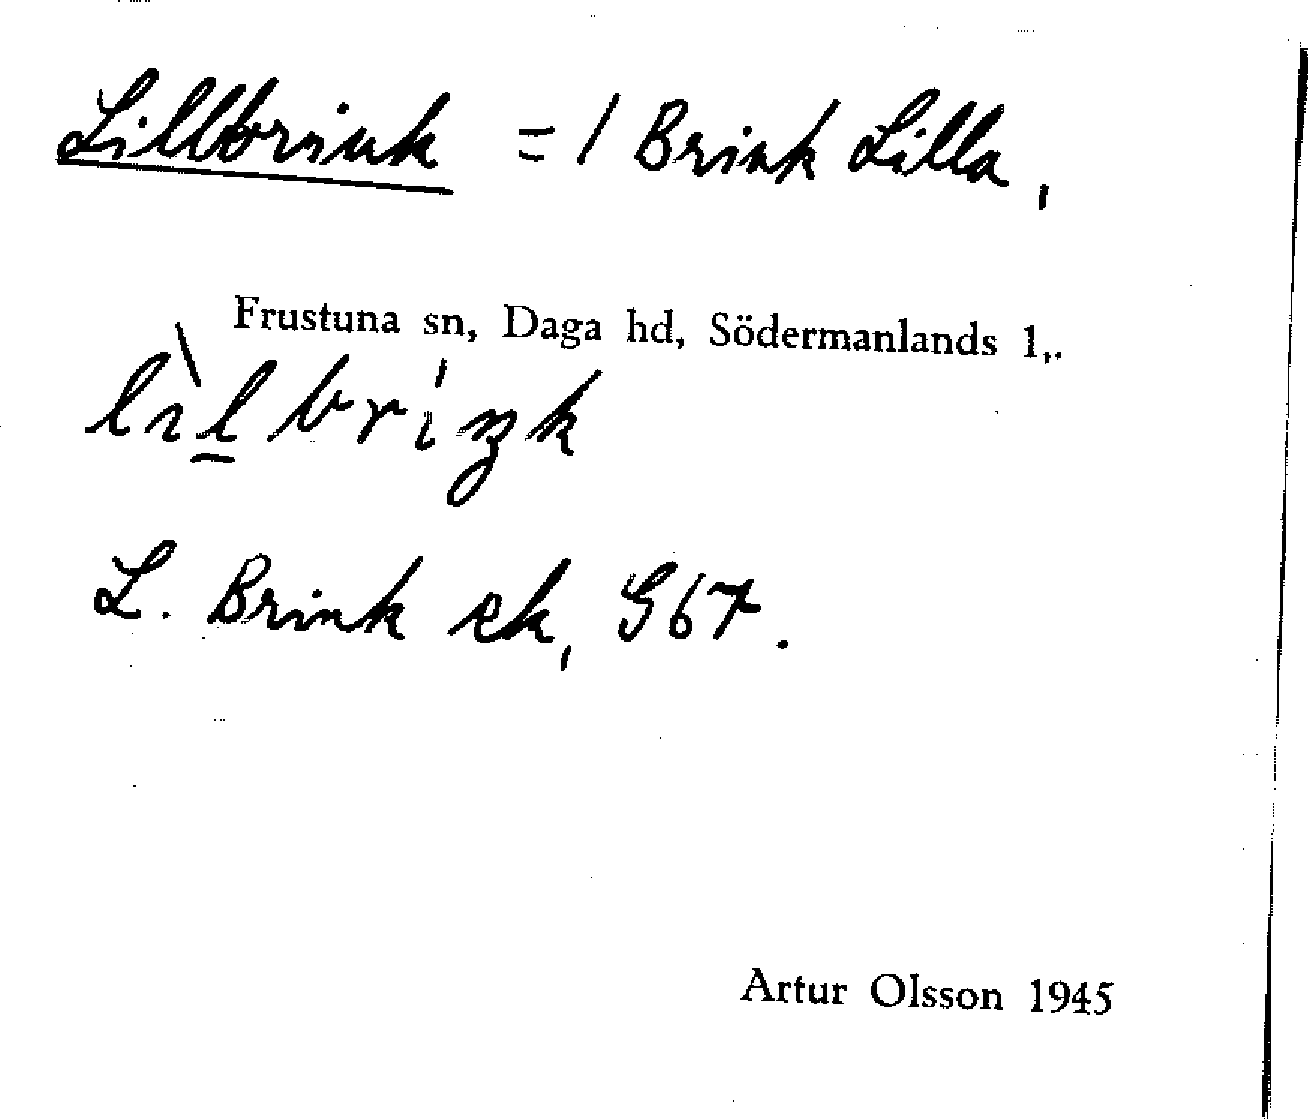 Lillbrink = / Brink Lilla,
Frustuna sn, Daga hd, Södermanlands l,.
L. Brink ek, G67.
Artur Olsson 1945